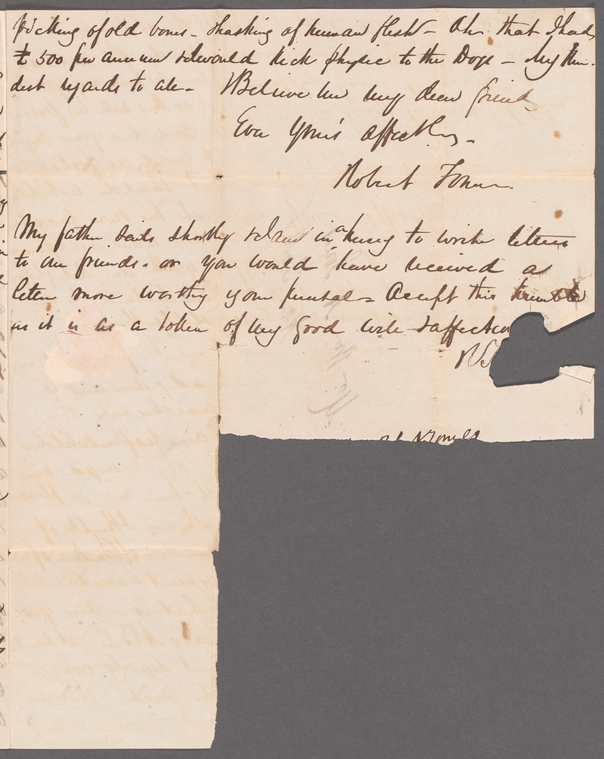 picking of old bones - of human flesh - Oh that I had
£500 per annum I would kick physic to the Dogs - My kin-
dest regards to all - Believe me my dear friend
Ever Your's affectly -
Robert
My father sails shortly & I am in a hurry to write letters
to our friends - or you would have received a
letter more worthy your perusal - Accept this
as it is as a token of my good will & affection
R